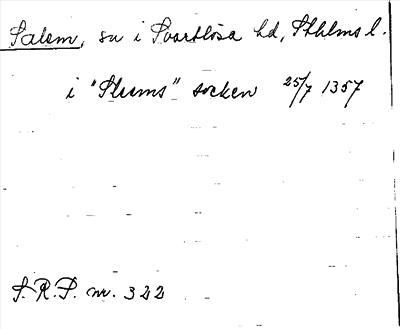 Salem, sn i Svartlösa hd, Sthlms l.
i "Slæms" socken 25/7 1357
S.R.P. nr. 322